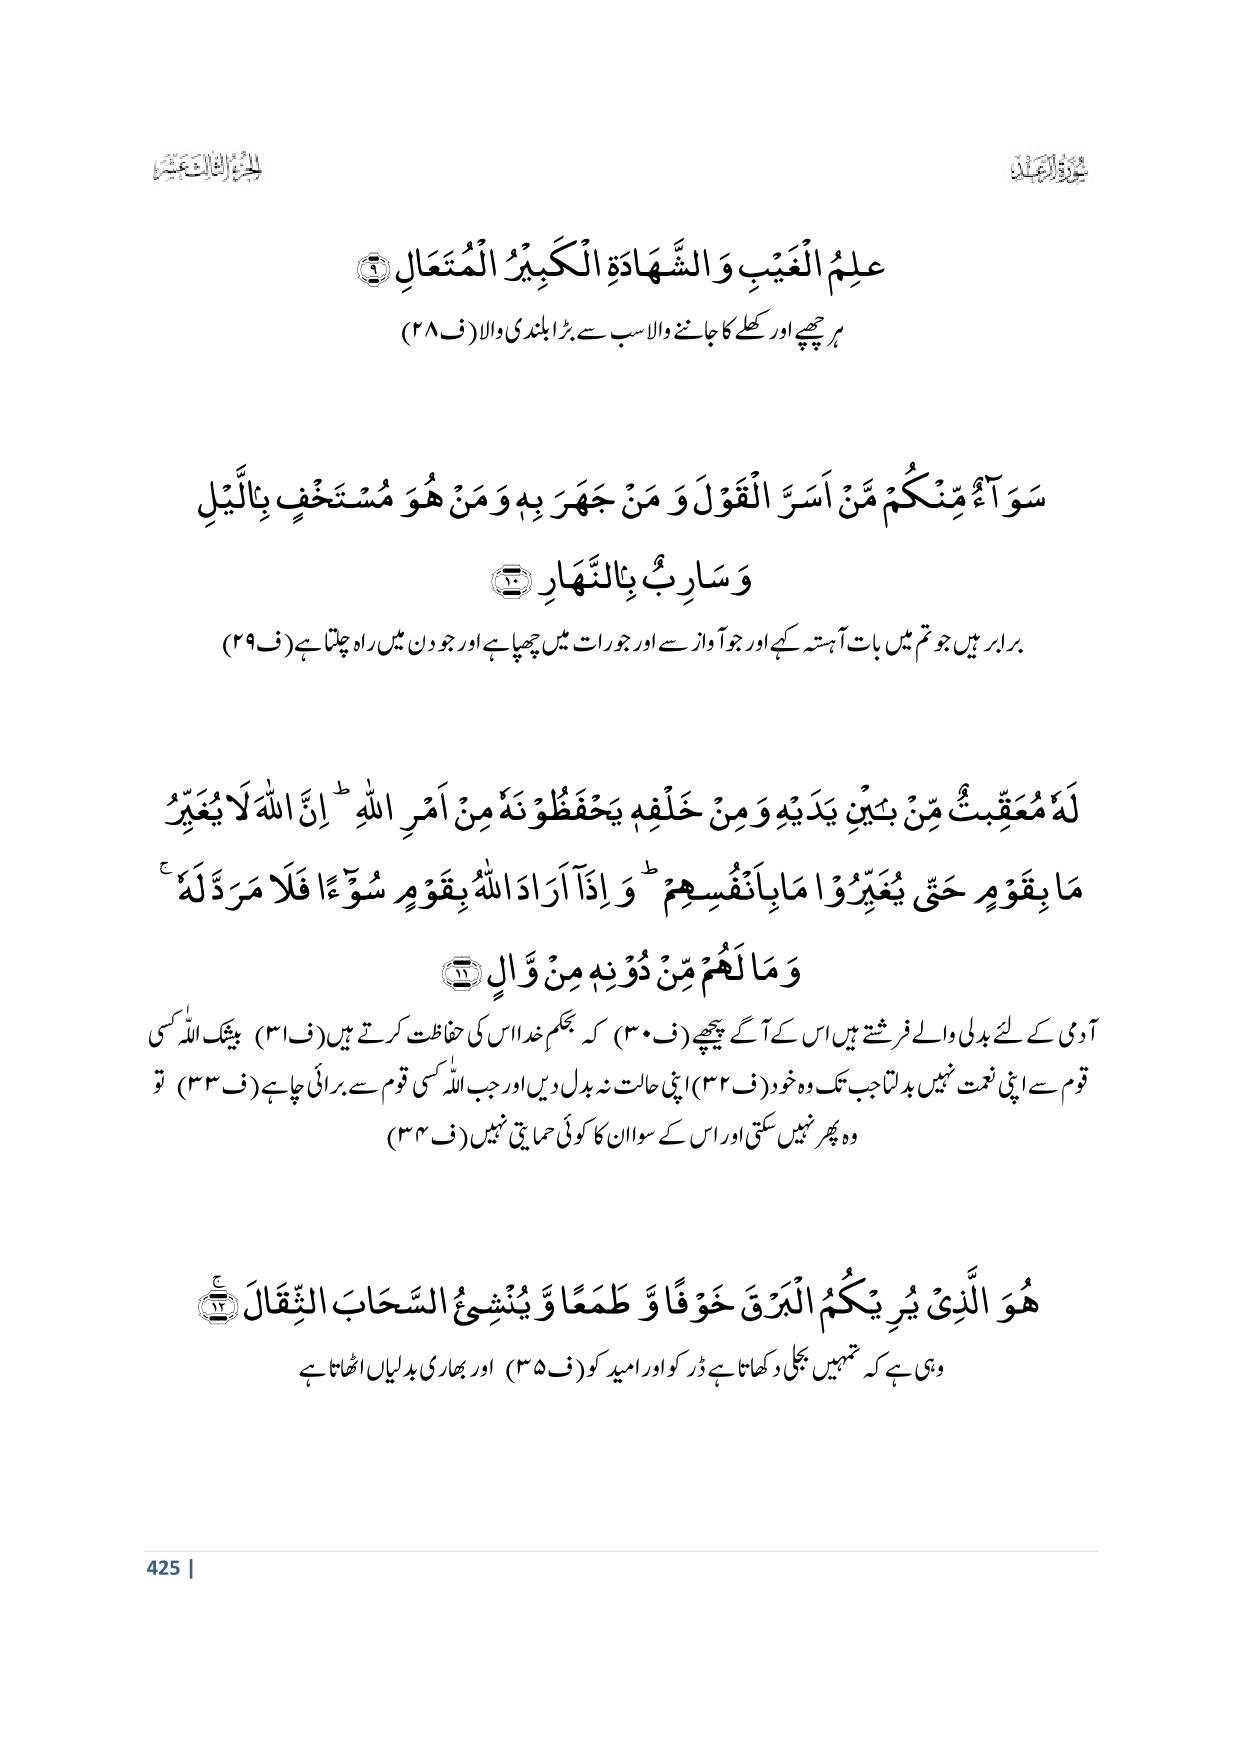 سُوۡرَۃُ الرَّعۡد
الجزء الثالث عشر
عٰلِمُ الۡغَیۡبِ وَ الشَّہَادَۃِ الۡکَبِیۡرُ الۡمُتَعَالِ ﴿۹﴾
ہر چھپے اور کھلے کا جاننے والا سب سے بڑا بلندی والا (ف۲۸)
سَوَآءٌ مِّنۡکُمۡ مَّنۡ اَسَرَّ الۡقَوۡلَ وَ مَنۡ جَہَرَ بِہٖ وَ مَنۡ ہُوَ مُسۡتَخۡفٍۭ بِالَّیۡلِ
وَ سَارِبٌۢ بِالنَّہَارِ ﴿۱۰﴾
برابر ہیں جو تم میں بات آہستہ کہے اور جو آواز سے اور جو رات میں چھپا ہے اور جو دن میں راہ چلتا ہے (ف۲۹)
لَہٗ مُعَقِّبٰتٌ مِّنۡۢ بَیۡنِ یَدَیۡہِ وَ مِنۡ خَلۡفِہٖ یَحۡفَظُوۡنَہٗ مِنۡ اَمۡرِ اللّٰہِ ؕ اِنَّ اللّٰہَ لَا یُغَیِّرُ
مَا بِقَوۡمٍ حَتّٰی یُغَیِّرُوۡا مَا بِاَنۡفُسِہِمۡ ؕ وَ اِذَاۤ اَرَادَ اللّٰہُ بِقَوۡمٍ سُوۡٓءًا فَلَا مَرَدَّ لَہٗ ۚ
وَ مَا لَہُمۡ مِّنۡ دُوۡنِہٖ مِنۡ وَّالٍ ﴿۱۱﴾
آدمی کے لئے بدلی والے فرشتے ہیں اس کے آگے پیچھے (ف۳۰) کہ بحکمِ خدا اس کی حفاظت کرتے ہیں (ف۳۱) بیشک اللّٰہ کسی
قوم سے اپنی نعمت نہیں بدلتا جب تک وہ خود (ف۳۲) اپنی حالت نہ بدل دیں اور جب اللّٰہ کسی قوم سے برائی چاہے (ف۳۳) تو
وہ پھر نہیں سکتی اور اس کے سوا ان کا کوئی حمایتی نہیں (ف۳۴)
ہُوَ الَّذِیۡ یُرِیۡکُمُ الۡبَرۡقَ خَوۡفًا وَّ طَمَعًا وَّ یُنۡشِیٴُ السَّحَابَ الثِّقَالَ ﴿ۚ۱۲﴾
وہی ہے کہ تمہیں بجلی دکھاتا ہے ڈر کو اور امید کو (ف۳۵) اور بھاری بدلیاں اٹھاتا ہے
425 |